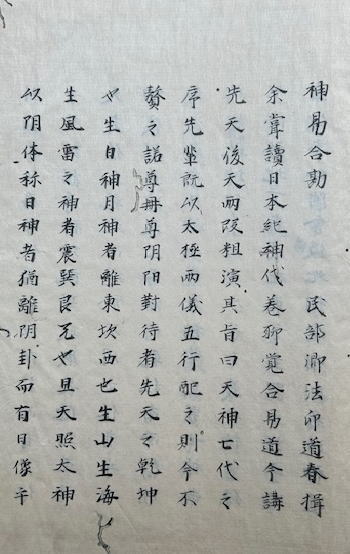 神易合勘　民部卿法印道春揖
余嘗讀日本紀神代卷聊覚合易道今講
先天後天兩段粗演其旨曰天神七代之
序先輩既以太極兩儀五行配之則今不
贅之諾尊冊尊阴阳對待者先天之乾坤
也生日神月神者離東坎西也生山生海
生風雷之神者震巽艮兌也且天照太神
以阴体称日神者猶離阴卦而有日像乎